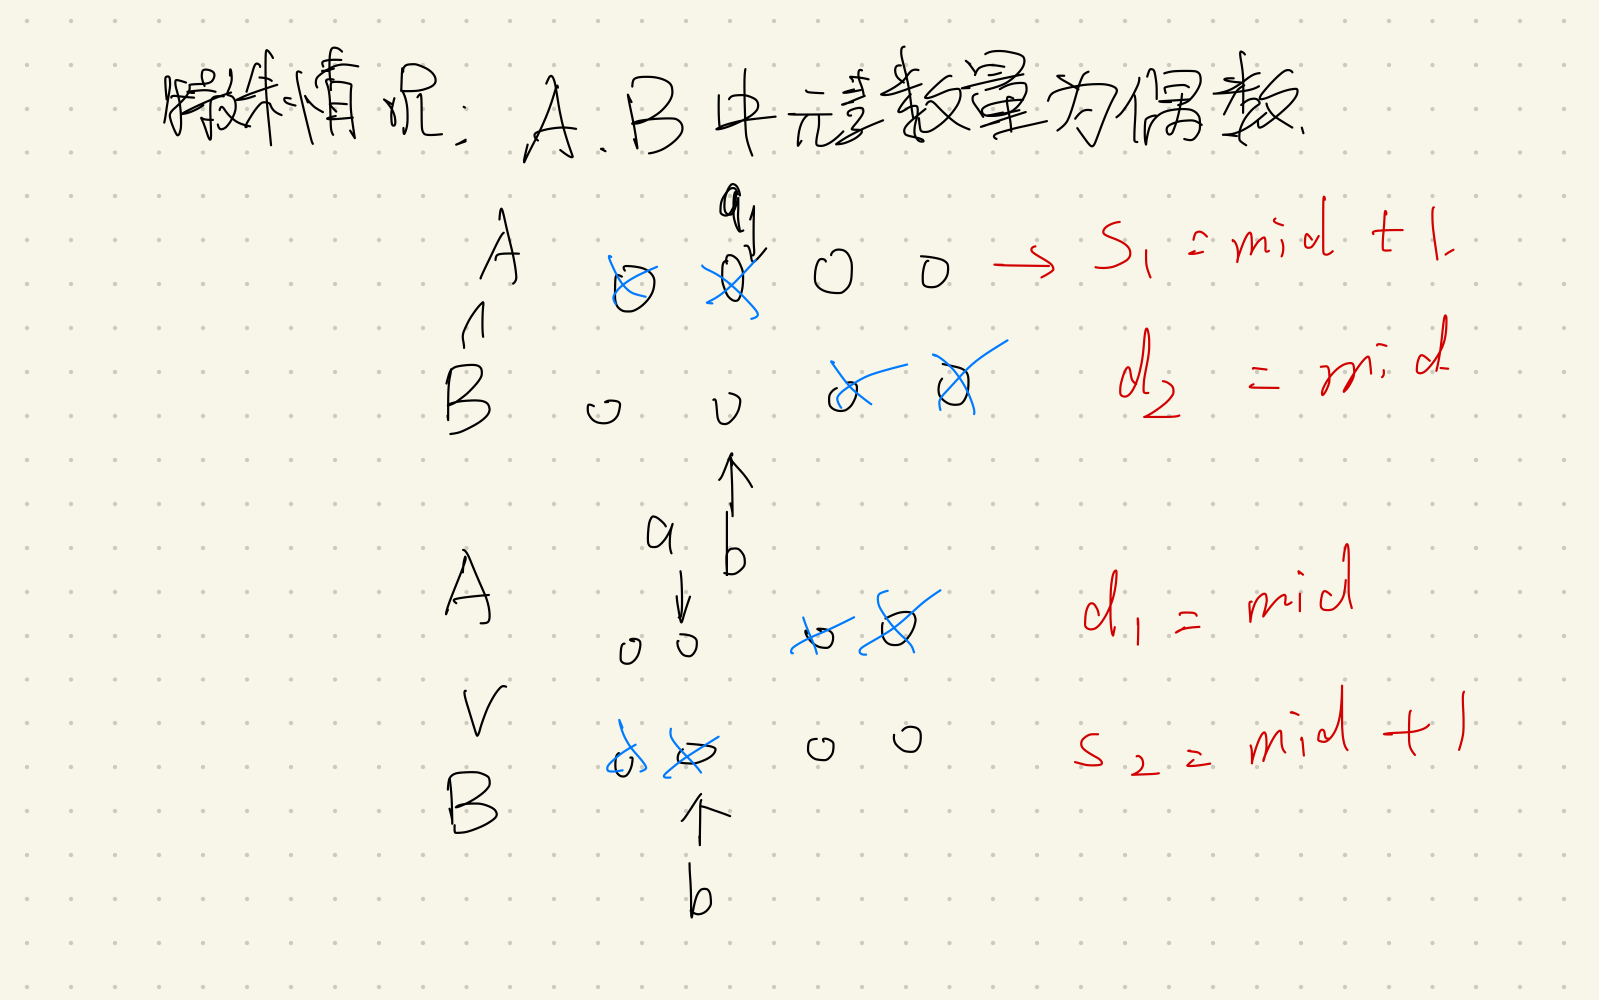 特殊情况: A.B中元素数量为偶数.
a
A → S₁ = mid + 1.
∧
B d₂ = mid
b
a
A d₁ = mid
∨
B S₂ = mid + 1
b